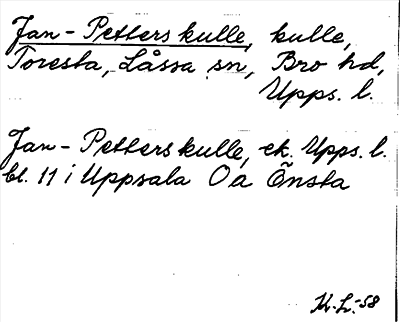 Jan-Petters kulle, kulle,
Toresta, Låssa sn, Bro hd,
Upps. l.
Jan-Petters kulle, ek. Upps. l.
bl. 11 i Uppsala Oa Önsta